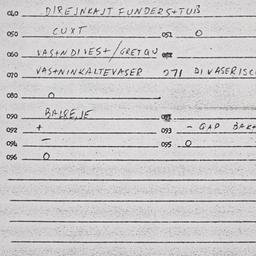 040 DIREJNKAJT FUNDERS+TUIS
050 CUXT 051 O
060 VAS+NDIVES+/GRETQU
070 VAS+NINKALTEVASER 071 DIVASERISC
080 O
090
092 + 093 - GAP BAK+
094 - 095 O
096 O